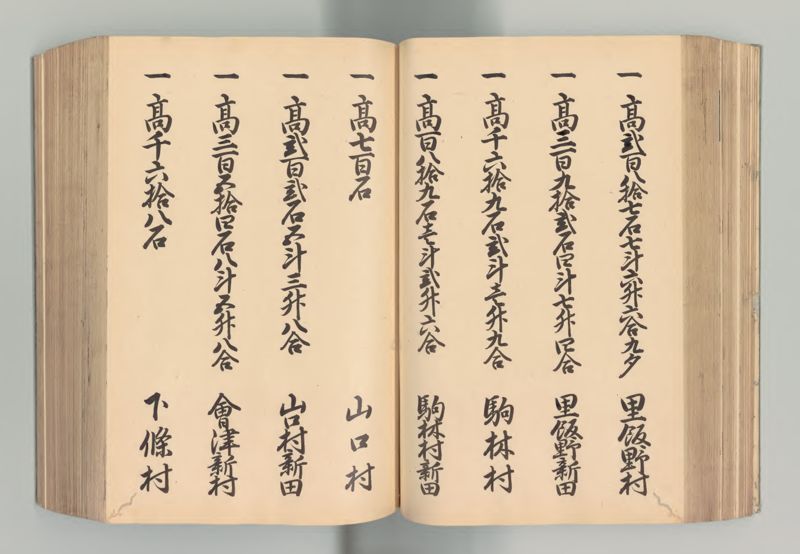 一 高弐百八拾七石七斗六升六合九夕 里飯野村
一 高三百九拾弐石四斗七升四合 里飯野新田
一 高千六拾九石弐斗壱升九合 駒林村
一 高百八拾九石壱斗弐升六合 駒林村新田
一 高七百石 山口村
一 高弐百弐石五斗三升八合 山口村新田
一 高三百五拾四石八斗五升八合 會津新村
一 高千六拾八石 下條村